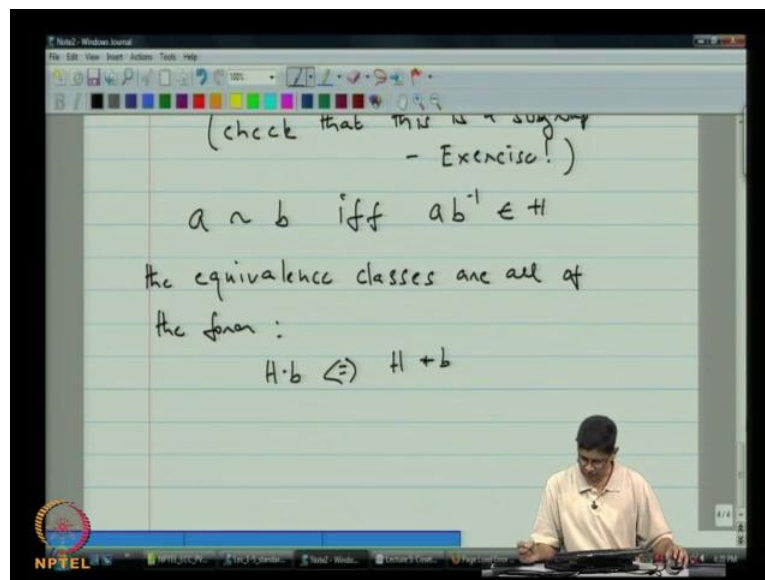 Note2 - Windows Journal
File Edit View Insert Actions Tools Help
100%
(check that this is a subgroup
- Exercise!)
a ~ b iff ab⁻¹ ∈ H
the equivalence classes are all of
the form :
H·b <=> H + b
4/4
NPTEL
Note2 - Windo...
Page Load Error
4:20 PM